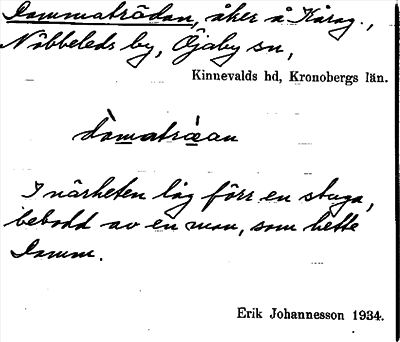 Dammaträdan, åker å Kårag.,
Nöbbeleds by, Öjaby sn,
Kinnevalds hd, Kronobergs län.
dàmatràan
I närheten låg förr en stuga,
bebodd av en man, som hette
Damm.
Erik Johannesson 1934.